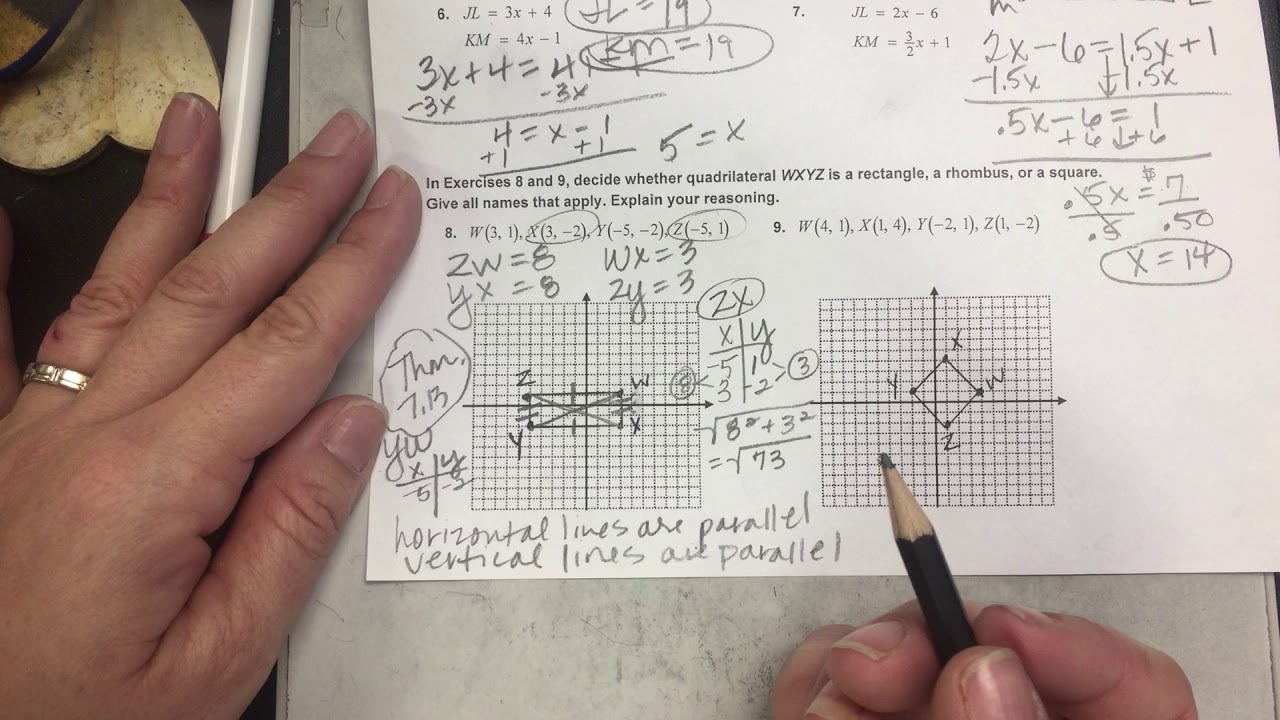 6. JL = 3x + 4
JL = 19
KM = 4x − 1
KM = 19
3x + 4 = 4
-3x -3x
4 = x - 1
+1 +1
5 = x
7. JL = 2x − 6
KM = 3/2x + 1
2x - 6 = 1.5x + 1
-1.5x -1.5x
.5x - 6 = 1
+6 +6
.5x = 7
.5 .50
x = 14
In Exercises 8 and 9, decide whether quadrilateral WXYZ is a rectangle, a rhombus, or a square.
Give all names that apply. Explain your reasoning.
8. W(3, 1), X(3, −2), Y(−5, −2), Z(−5, 1)
ZW = 8 WX = 3
YX = 8 ZY = 3
Thm.
7.13
Z W
Y X
YW
x y
-5 -2
ZX
x y
-5 1
3 -2
8 3
√8² + 3²
= √73
horizontal lines are parallel
vertical lines are parallel
9. W(4, 1), X(1, 4), Y(−2, 1), Z(1, −2)
X
Y W
Z